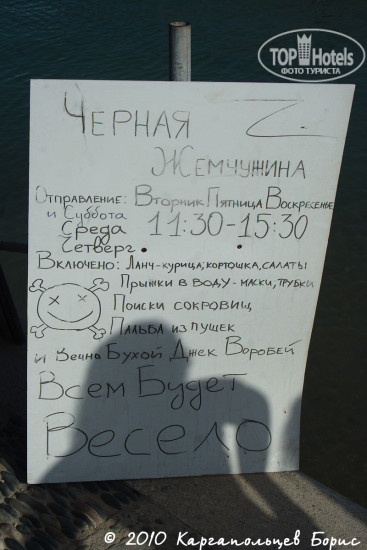 TOPHotels
ФОТО ТУРИСТА
Черная
Жемчужина
Отправление: Вторник Пятница Воскресенье
и Суббота
Среда 11:30-15:30
Четверг
Включено: Ланч-курица, кортошка, салаты
Прыжки в воду - маски, трубки
Поиски сокровищ
Пальба из пушек
и Вечно Бухой Джек Воробей
Всем Будет
Весело
© 2010 Каргапольцев Борис